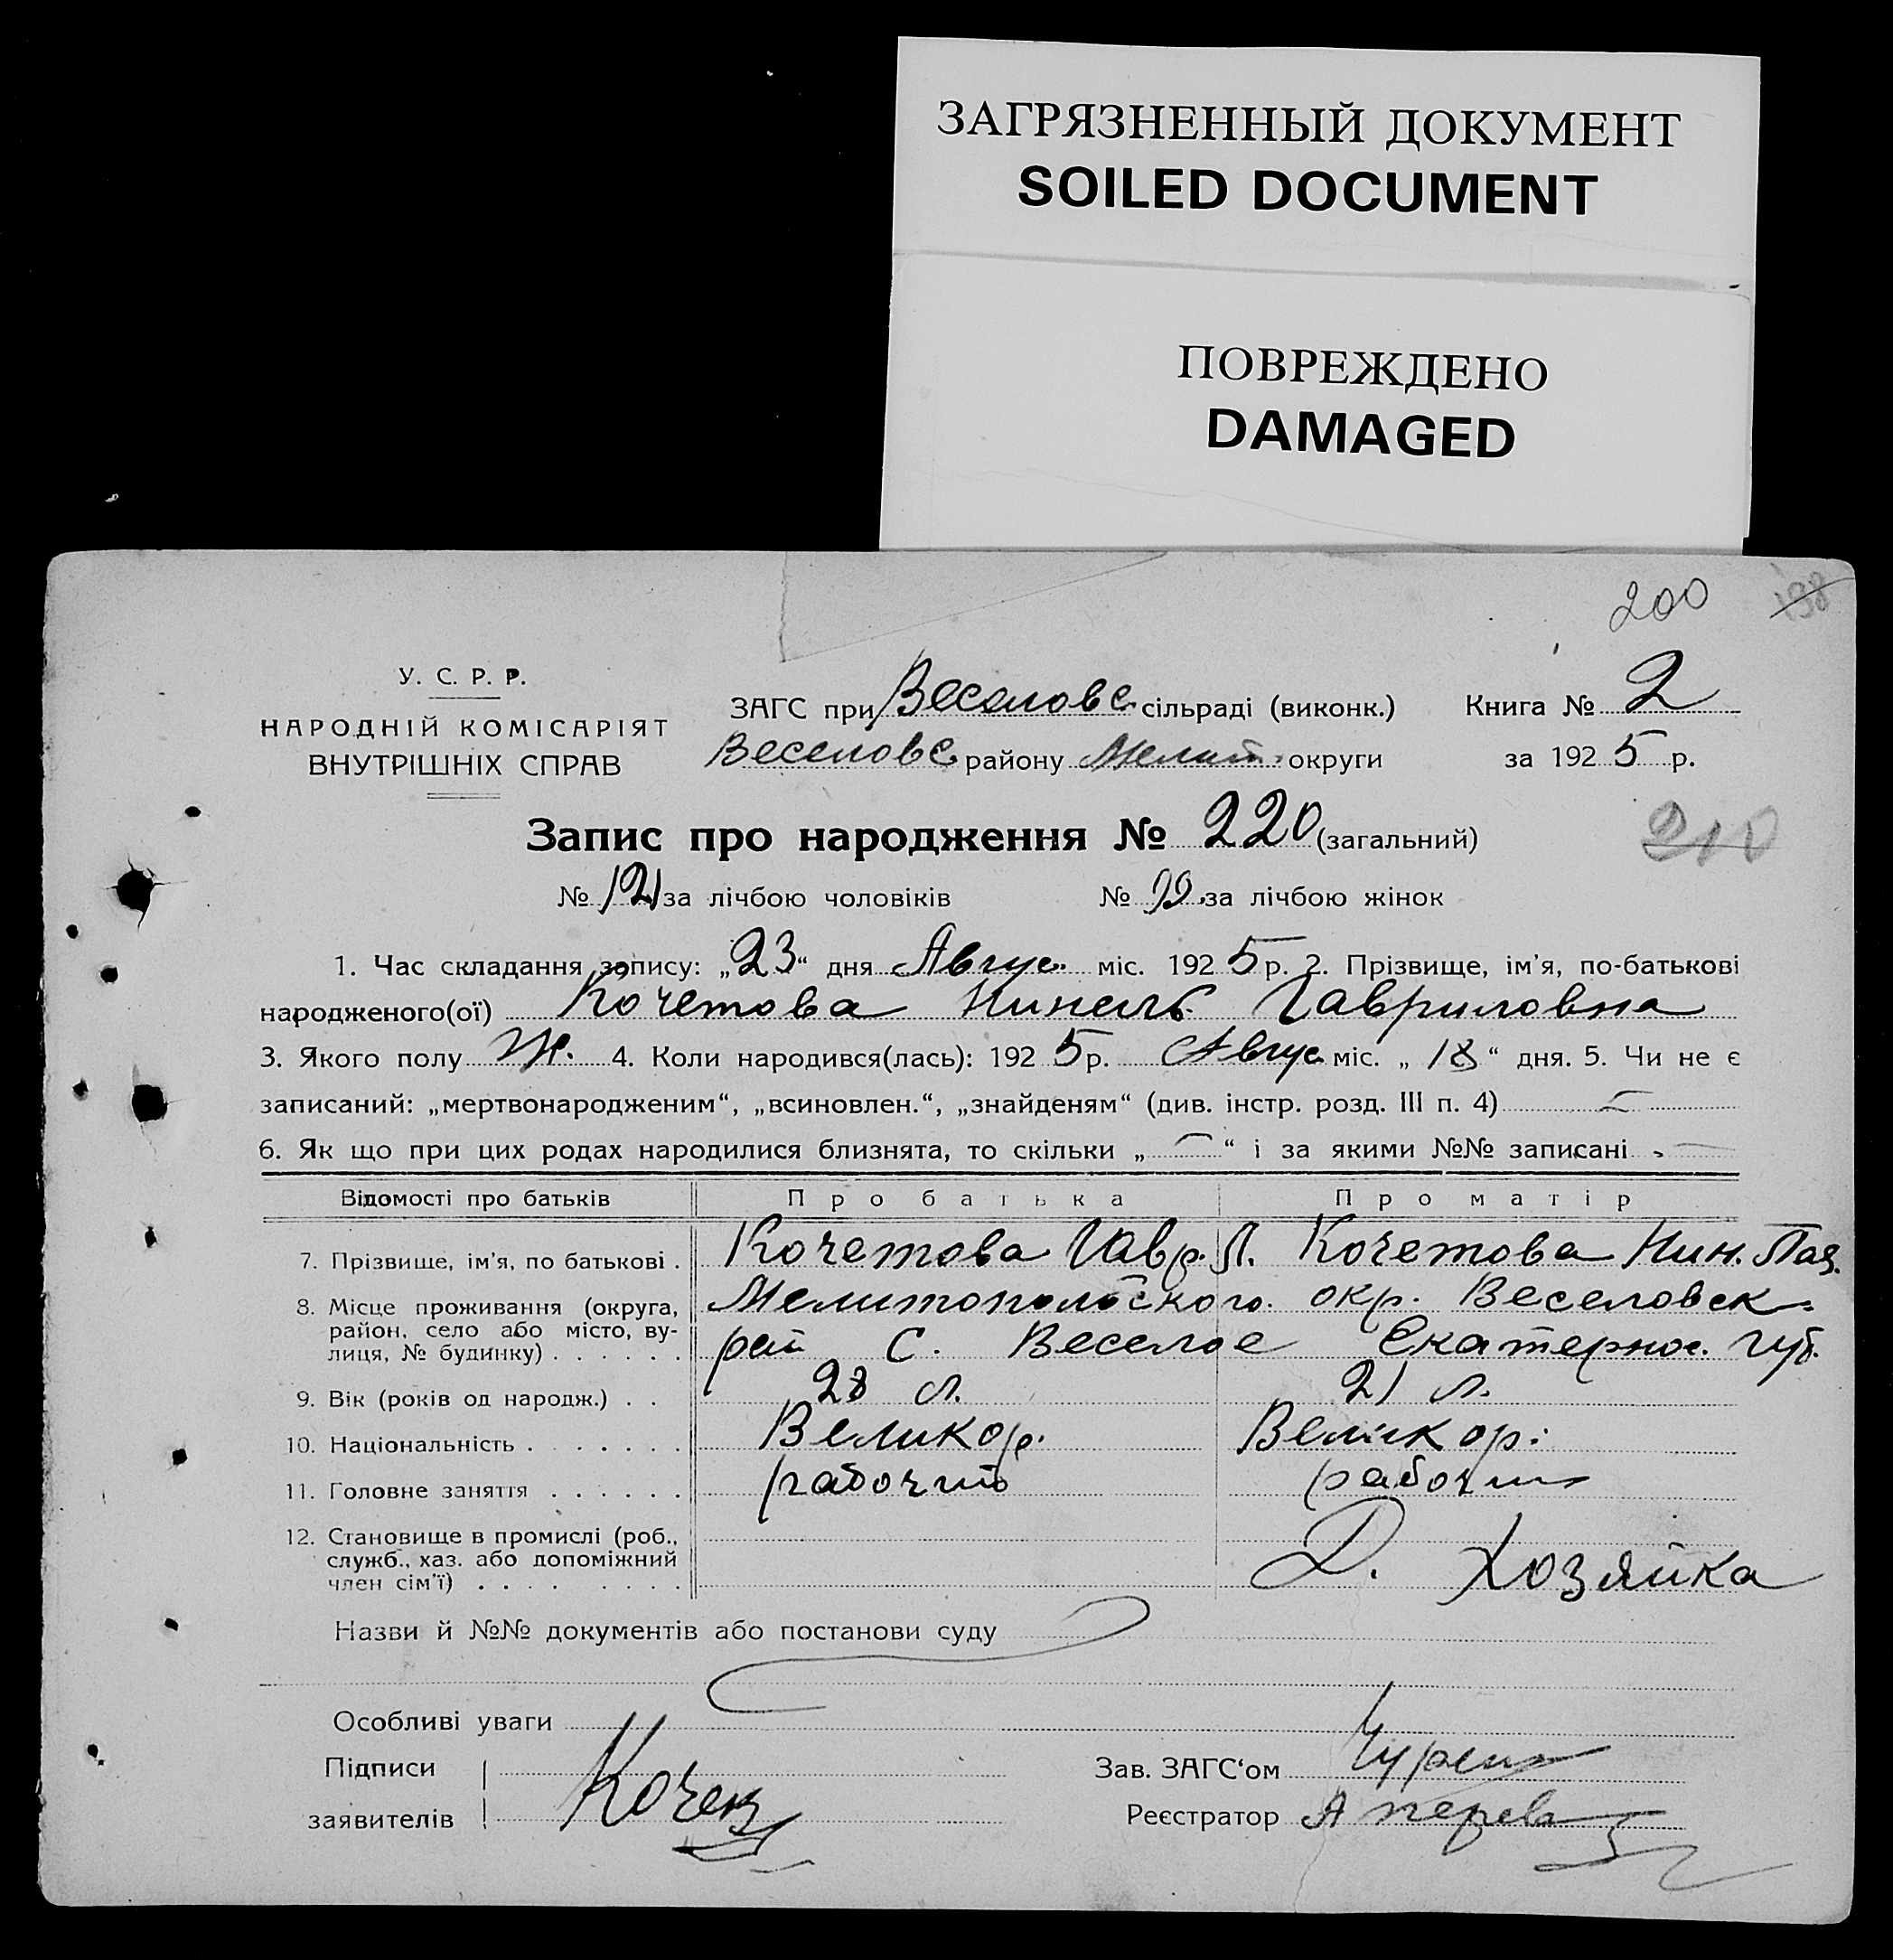 ЗАГРЯЗНЕННЫЙ ДОКУМЕНТ
SOILED DOCUMENT
ПОВРЕЖДЕНО
DAMAGED
200 198
У. С. Р. Р.
НАРОДНІЙ КОМІСАРІЯТ
ВНУТРІШНІХ СПРАВ
ЗАГС при Веселовс. сільраді (виконк.) Книга № 2
Веселовс району Мелит. округи за 1925 р.
Запис про народження № 220 (загальний)
210
№ 121 за лічбою чоловіків № 99 за лічбою жінок
1. Час складання запису: „23“ дня Авгус. міс. 1925 р. 2. Прізвище, ім'я, по-батькові
народженого(ої) Кочетова Нинель Гавриловна
3. Якого полу Ж. 4. Коли народився(лась): 1925 р. Авгус. міс. „18“ дня. 5. Чи не є
записаний: „мертвонародженим“, „всиновлен.“, „знайденям“ (див. інстр. розд. III п. 4) —
6. Як що при цих родах народилися близнята, то скільки „—“ і за якими №№ записані —
Відомості про батьків Про батька Про матір
7. Прізвище, ім'я, по батькові . Кочетова Гавр. Л. Кочетова Нин.
8. Місце проживання (округа, Мелитопольского. окр. Веселовск.
район, село або місто, ву-
лиця, № будинку) . . . . . . рай с. Веселое Екатеринос. губ.
9. Вік (років од народж.) . . 28 л. 21 л.
10. Національність . . . . . . . Великор. Великор.
11. Головне заняття . . . . . . рабочий рабочий
12. Становище в промислі (роб.,
служб., хаз. або допоміжний
член сім'ї) . . . . . . . . Д. Хозяйка
Назви й №№ документів або постанови суду
Особливі уваги
Підписи
заявителів
Зав. ЗАГС'ом
Реєстратор